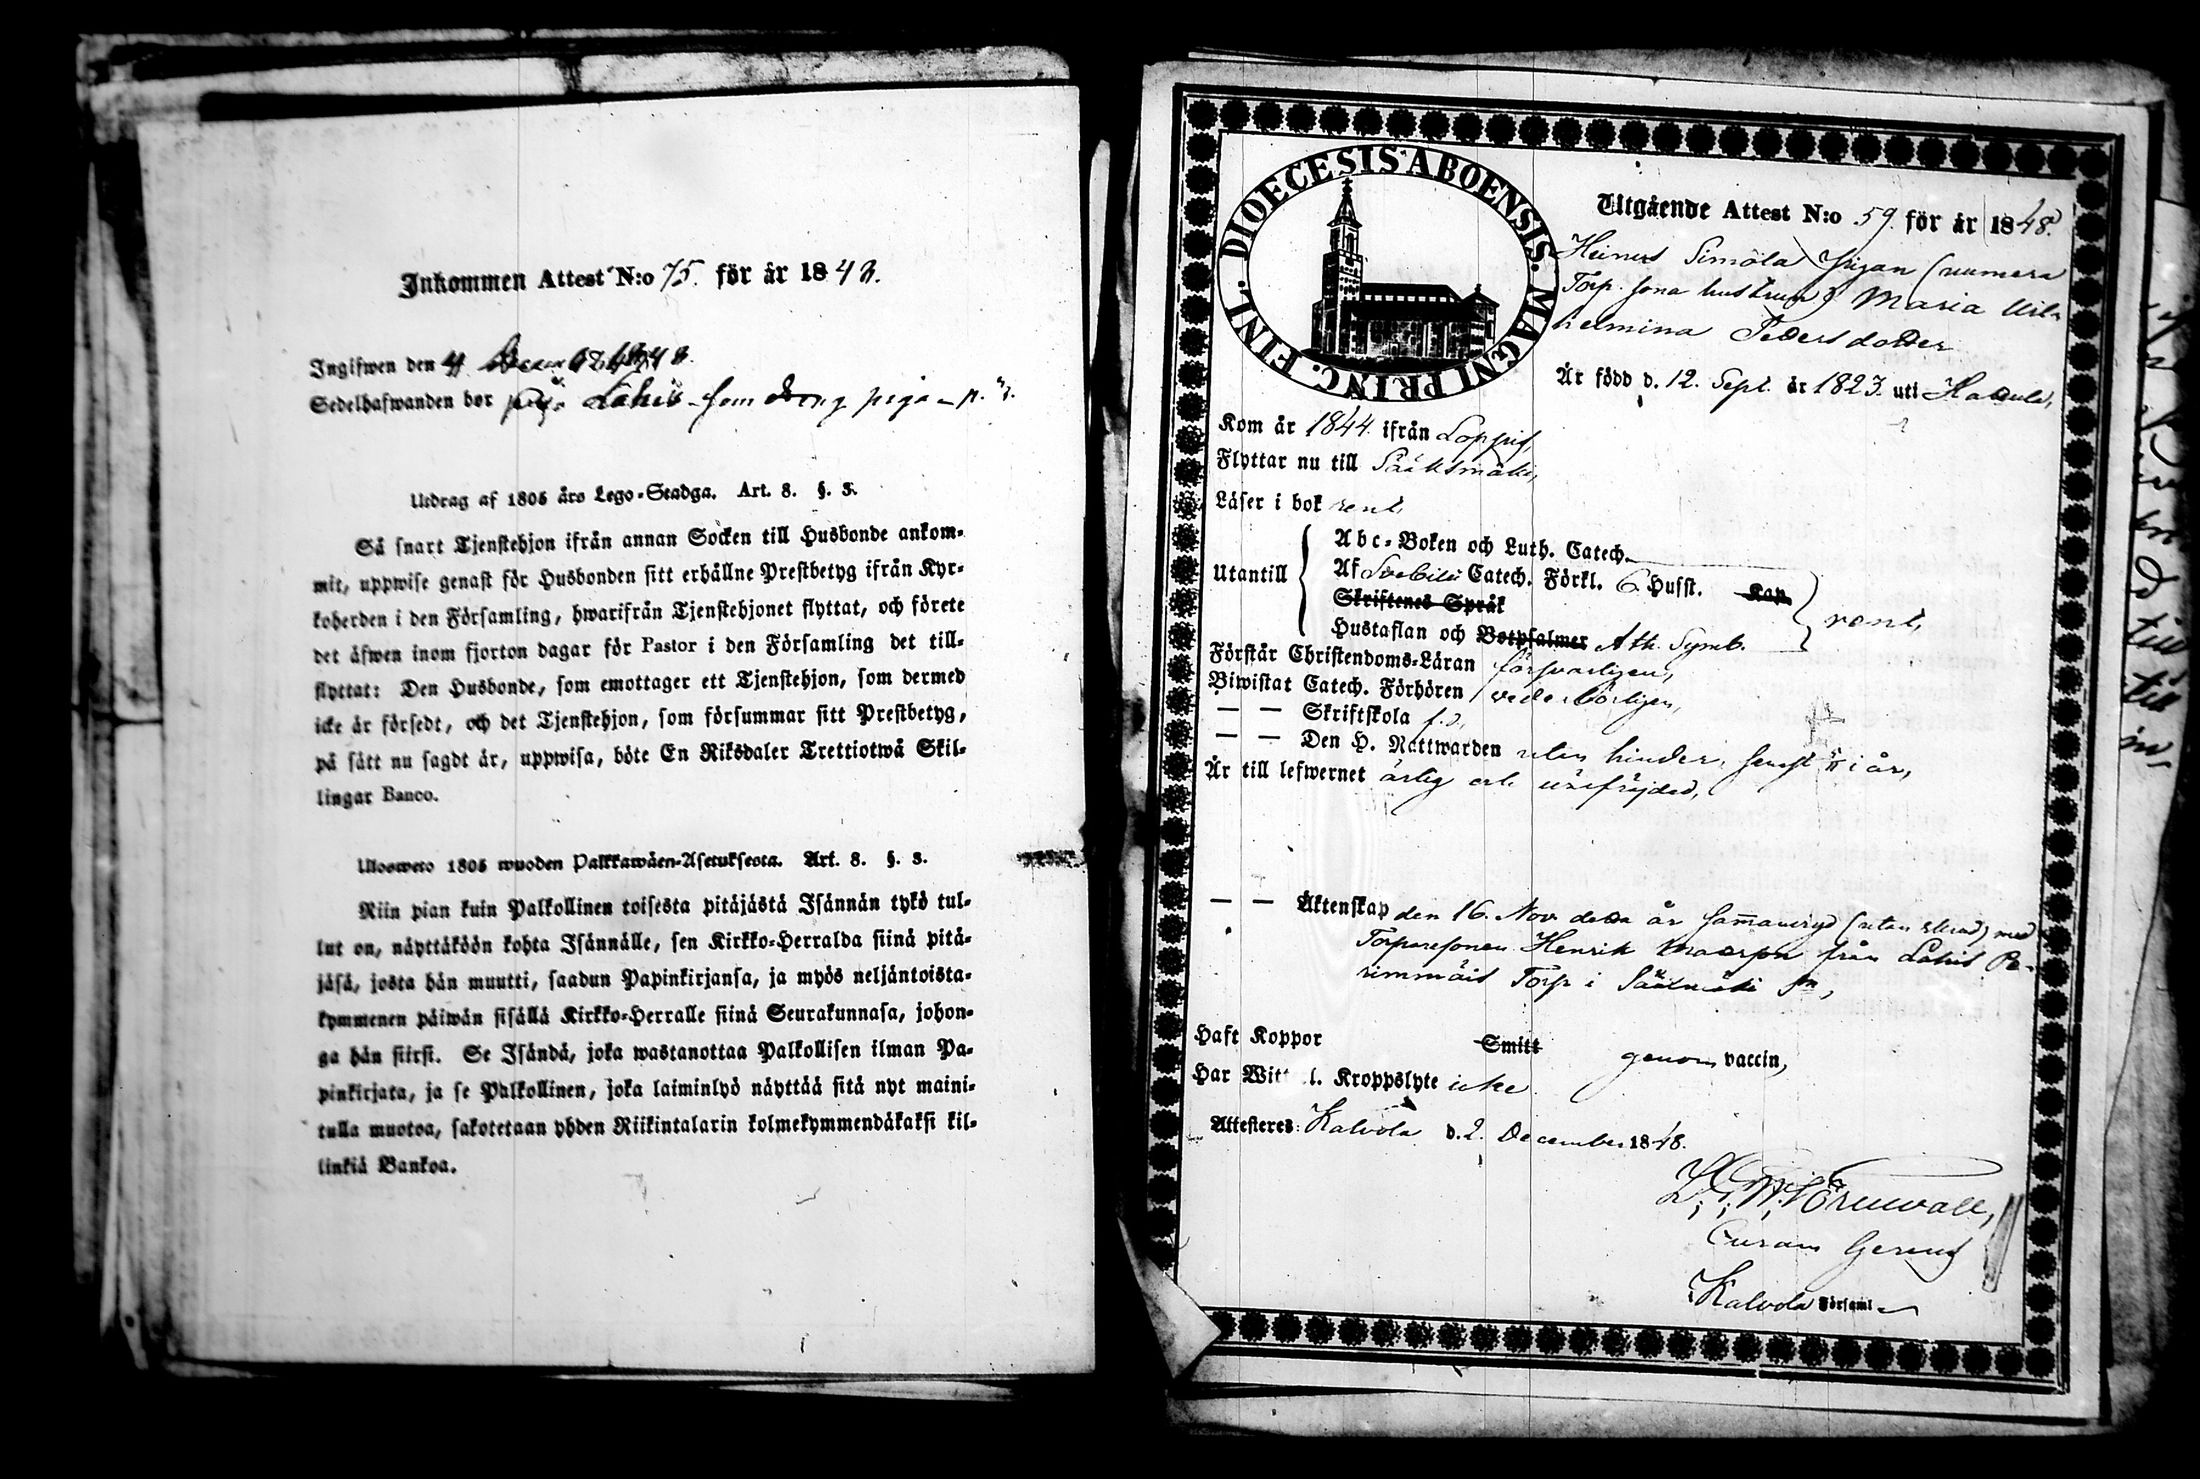 Inkommen Attest N:o 75. för år 1848.
Ingifwen den
Sedelhafwanden bor på Lahis som piga
Utdrag af 1805 års Lego-Stadga. Art. 8. §. 3.
Så snart Tjenstehjon ifrån annan Socken till Husbonde ankom-
mit, uppwise genast för Husbonden sitt erhållne Prestbetyg ifrån Kyr-
koherden i den Församling, hwarifrån Tjenstehjonet flyttat, och förete
det äfwen inom fjorton dagar för Pastor i den Församling det till-
flyttat: Den Husbonde, som emottager ett Tjenstehjon, som dermed
icke är försedt, och det Tjenstehjon, som försummar sitt Prestbetyg,
på sätt nu sagdt är, uppwisa, böte En Riksdaler Trettiotwå Skil-
lingar Banco.
Ulosweto 1805 wuoden Palkkawäen-Asetuksesta. Art. 8. §. 3.
Niin pian kuin Palkollinen toisesta pitäjästä Isännän tykö tul-
lut on, näyttäköön kohta Isännälle, sen Kirkko-Herralda siinä pitä-
jäsä, josta hän muutti, saadun Papinkirjansa, ja myös neljäntoista-
kymmenen päiwän sisällä Kirkko-Herralle siinä Seurakunnasa, johon-
ga hän siirsi. Se Isändä, joka wastanottaa Palkollisen ilman Pa-
pinkirjata, ja se Palkollinen, joka laiminlyö näyttää sitä nyt maini-
tulla muotoa, sakotetaan yhden Riikintalarin kolmekymmendäkaksi kil-
linkiä Bankoa.
DIOECESIS ABOENSIS. MAGNI PRINC. FINL.
Utgående Attest N:o 59. för år 1848.
Heinus Simola Pigan (numera
Torp. sona hustrun) Maria Vil-
helmina Pedersdotter
Är född d. 12. Sept. år 1823. uti
Kom år 1844. ifrån Loppis,
Flyttar nu till Sääksmäki,
Läser i bok rent,
Utantill
Abc-Boken och Luth. Catech.
Af Svebilii Catech. Förkl. 6 Husst. Kap.
Skriftenes Språk
Hustaflan och Botpsalmer Ath. Symb.
rent,
Förstår Christendoms-Läran försvarligen,
Biwistat Catech. Förhören vederbörligen,
— — Skriftskola
— — Den H. Nattwarden utan hinder, senast i år,
Är till lefwernet ärlig och
— — Äktenskap den 16. Nov. detta år sammanvigd (utan ) med
Torparesonen Henrik från Lahis
Torp i Sääksmäki Sn,
Haft Koppor Smitt genom vaccin,
Har Wit l. Kroppslyte icke
Attesteres: Kalvola d. 2. December 1848.
Curam Gerens
Kalvola Församl